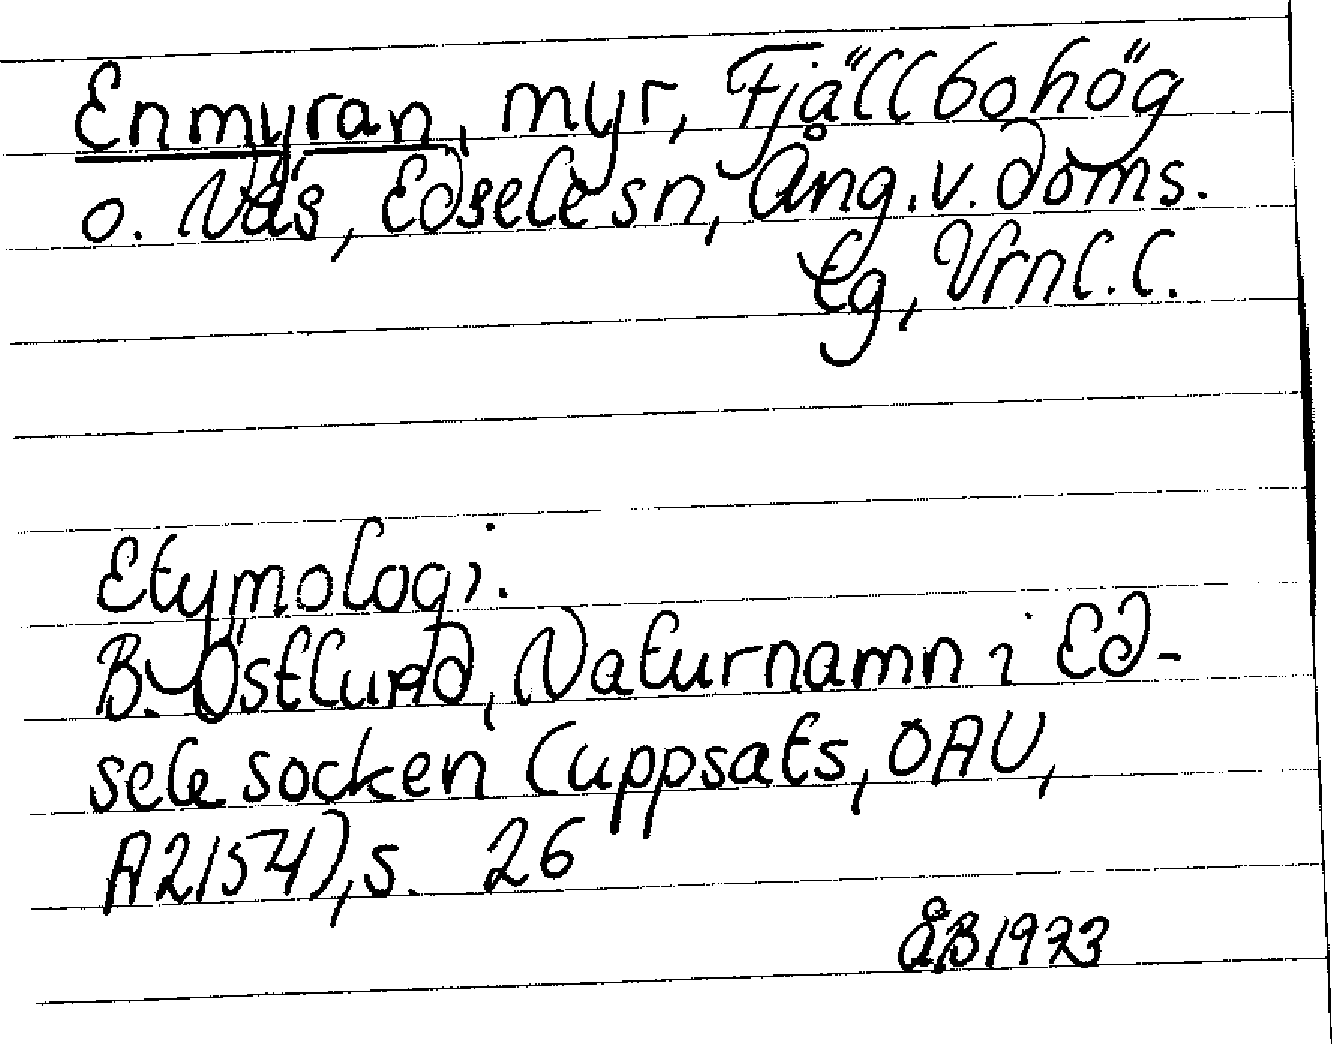 Enmyran, myr, Fjällbohög
o. Näs, Edsele sn, Ång. v. doms.
tg, Vrnl. l.
Etymologi.
B. Östlund, Naturnamn i Ed-
sele socken (uppsats, OAU,
A2154), s. 26
ÅB 1973